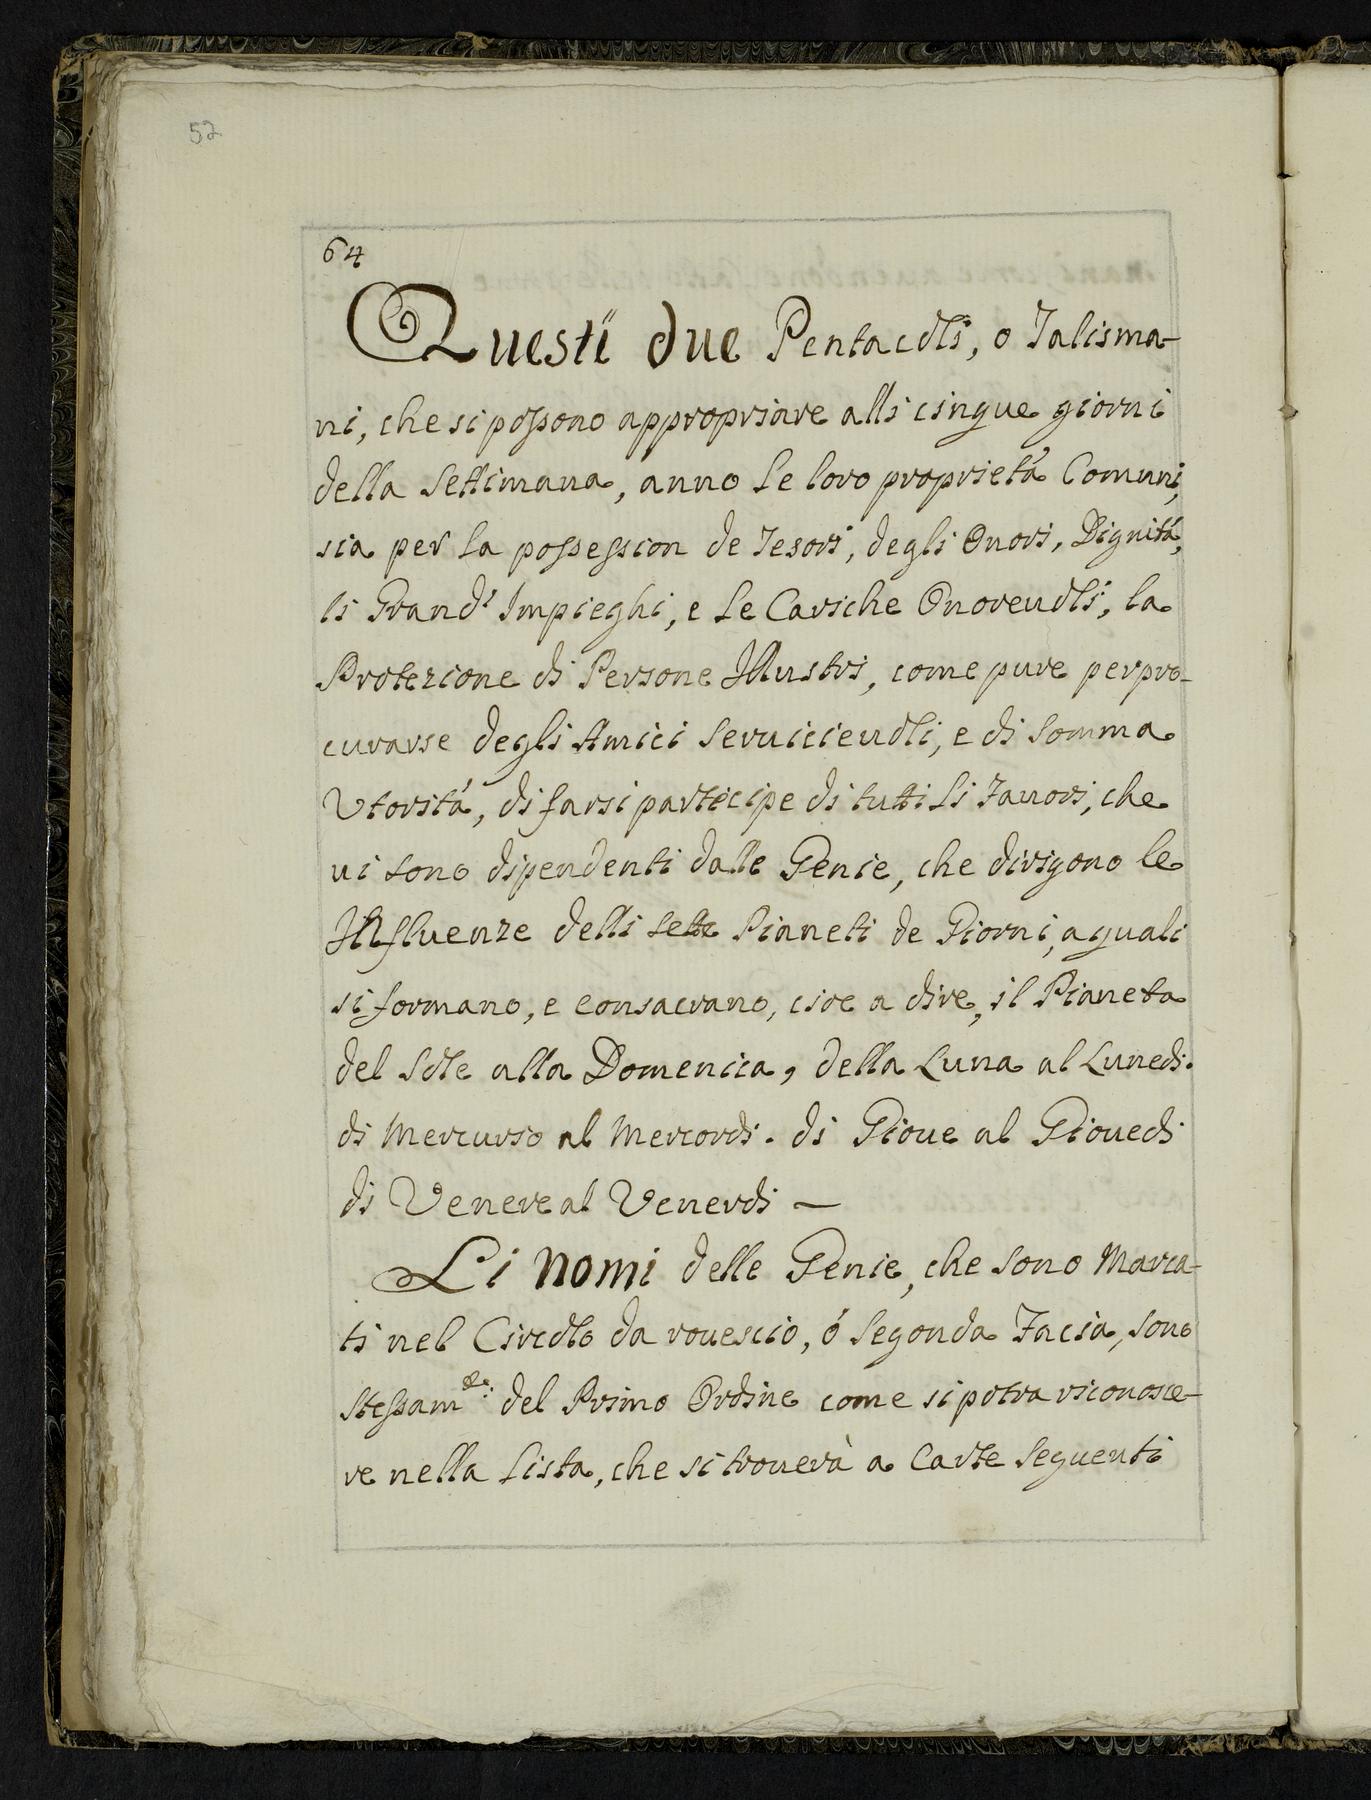 52
64
Questi due Pentacoli, o Talisma-
ni, che si possono appropriare alli cinque giorni
della Settimana, anno le loro proprietá Comuni,
sia per la possession de Tesori, degli Onori, Dignitá,
li Grandi Impieghi, e le Cariche Onorevoli, la
Protezione di Persone Illustri, come pure per pro-
curarse degli Amici servicievoli, e di somma
Utoritá, di farsi participe di tutti li Favori, che
vi sono dipendenti dalle Genie, che dirigono le
Influenze delli sette Pianeti de Giorni, a quali
si formano, e consacrano, cioe a dire, il Pianeta
del Sole alla Domenica, della Luna al Lunedi.
di Mercurio al Mercordi. di Giove al Giovedi
di Venere al Venerdi —
Li Nomi delle Genie, che sono Marca-
ti nel Circolo da rovescio, ó segonda Facia, sono
stessam.te del Primo Ordine come si potra riconosce-
re nella Lista, che si troverà a Carte seguenti